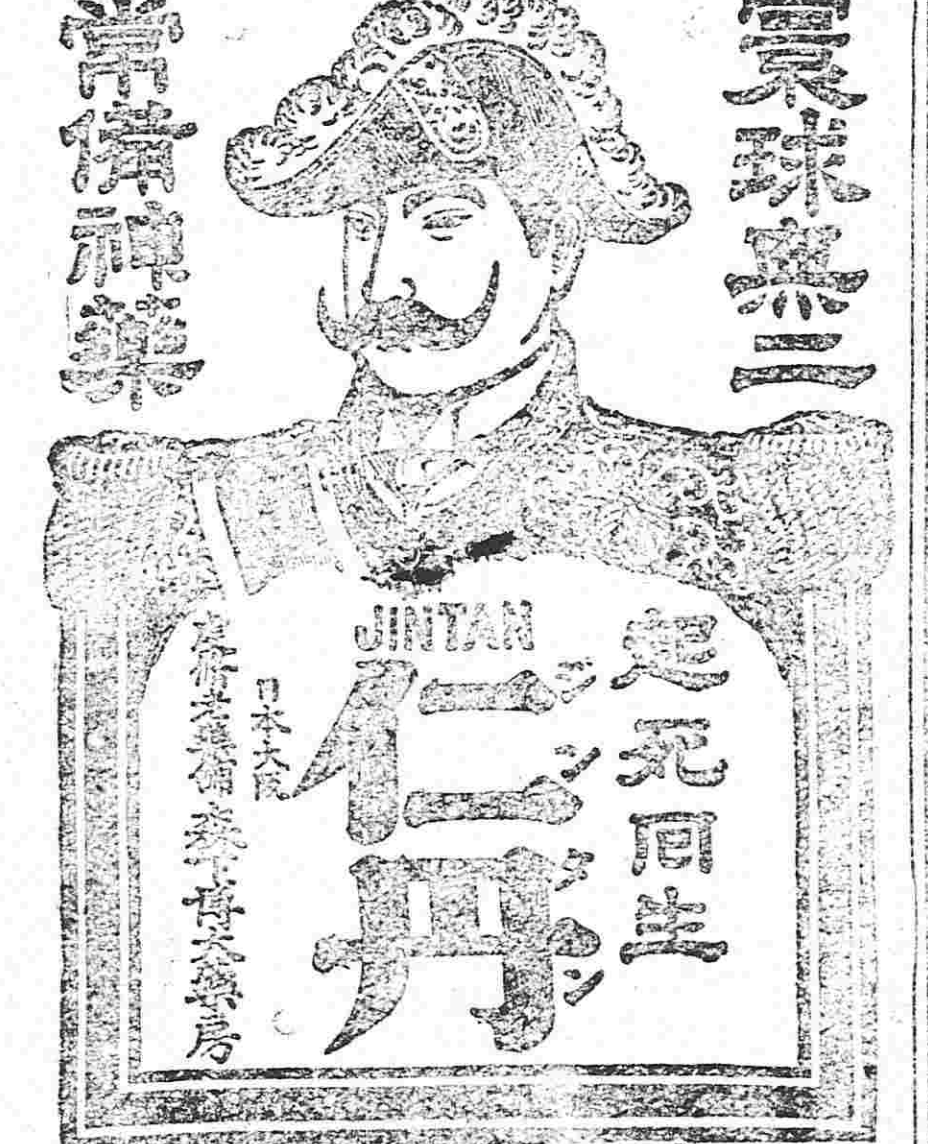 寰球無二
常備神藥
JINTAN
起死回生
仁丹
ジンタン
日本大阪
森下博藥房